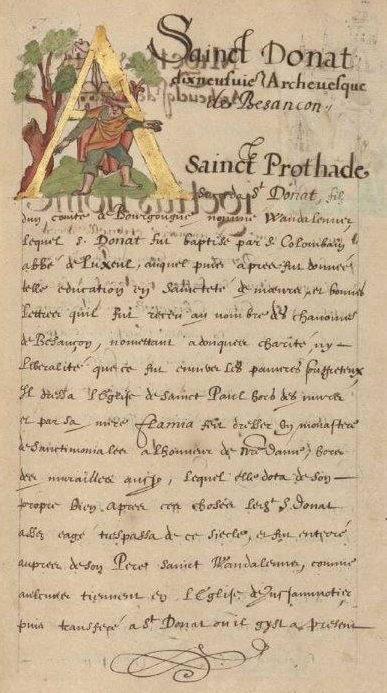 Sainct Donat
dixneufuie Archeuesque
de Besançon.
A Sainct Prothade
St Donat, filz
dun comte de Bourgougne nomme Wandalenus,
lequel S. Donat fut baptisé par S. Colomban
abbé de Luxeul, auquel puis apres fut donnee
telle education en saincteté de moeurs, et bonnes
lettres quil fut receu au nombre des chanoines
de Besançon, nomettant adonques charité, ny
liberalité que ce fut enuers les pauures souffreteux
Il dressa l'Eglise de Sainct Paul hors des murs
et par sa mere Flamia feit dresser un monastere
de Sanctimoniales a lhonneur de nre dame hors
des murailles aussy, lequel elle dota de son
propre bien, apres ces choses ledit S. Donat
assez eagé trespassa de ce siecle, et fut enterré
aupres de son Pere Sainct Wandalenus, comme
aulcuns tiennent en l'Eglise de
puis transferé a St Donat ou il gyst a present